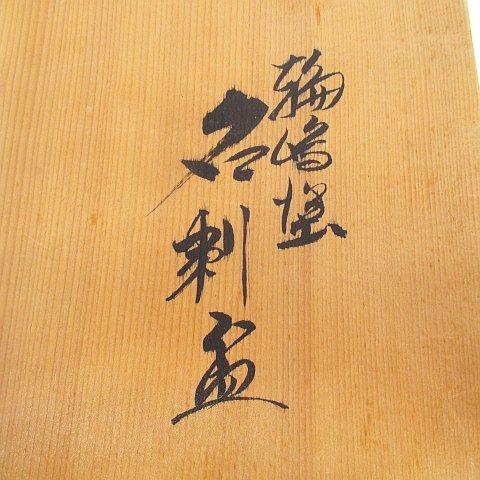 輪嶋塗
名刺盆